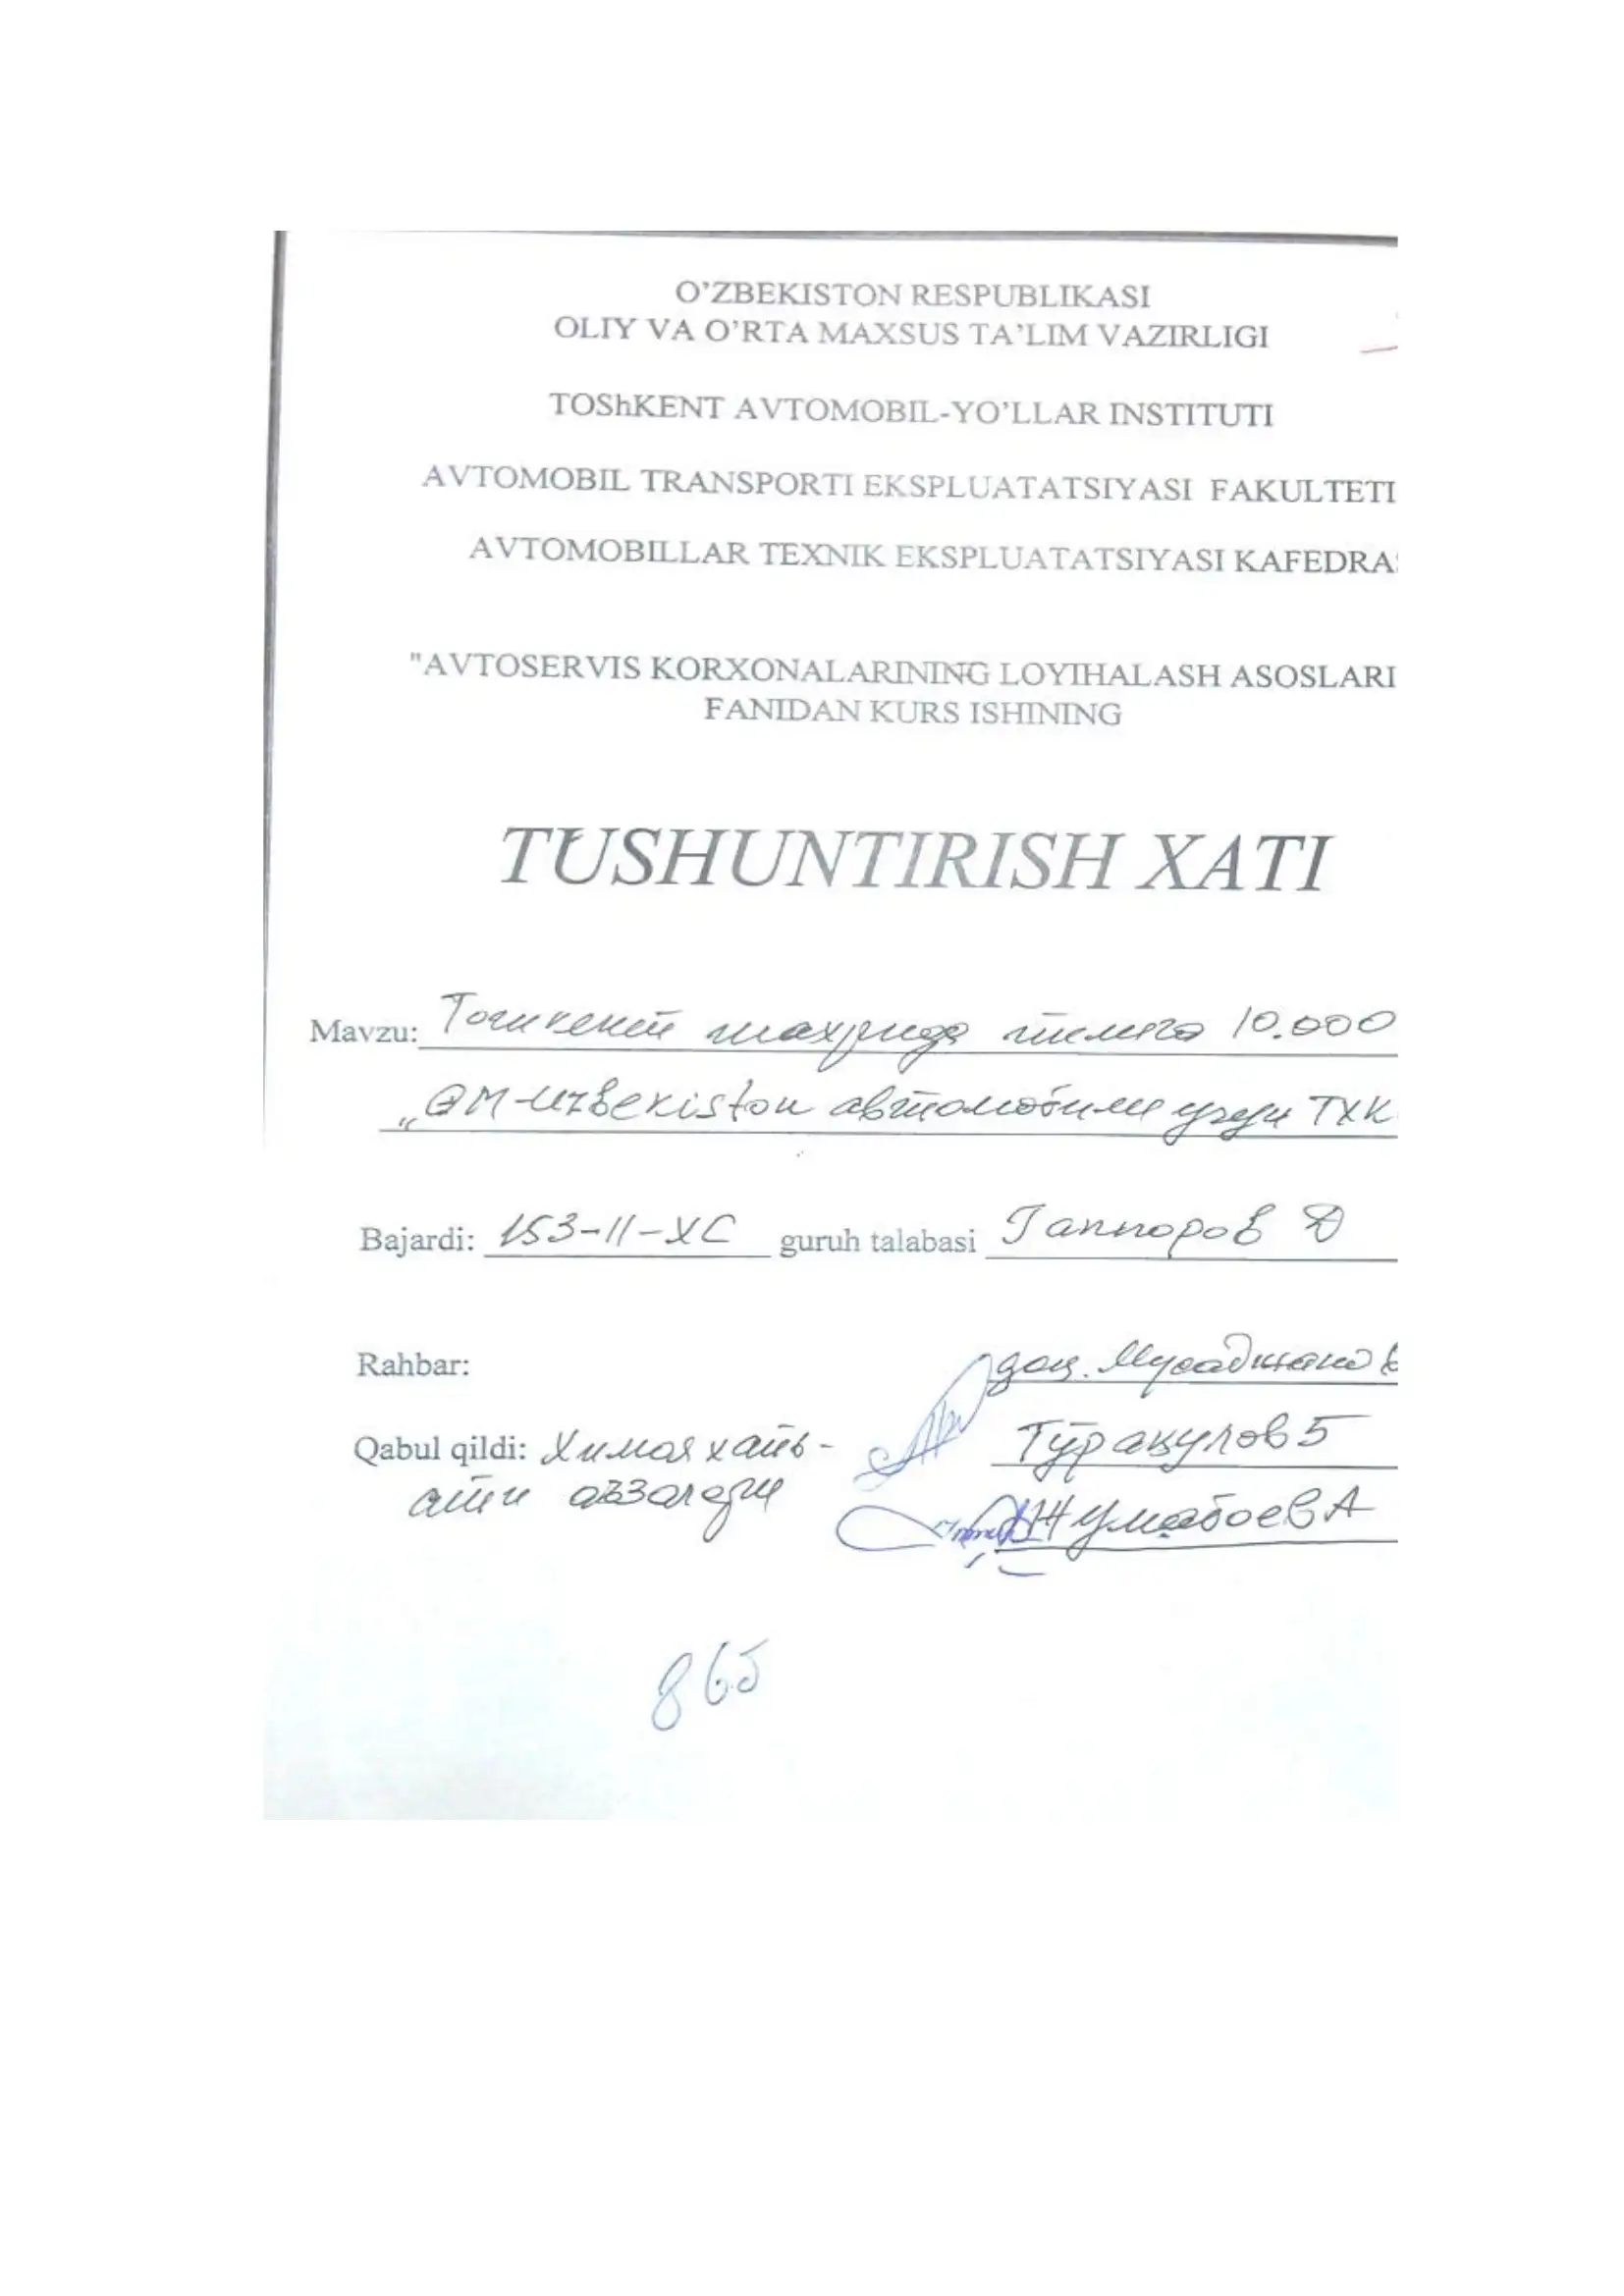 O'ZBEKISTON RESPUBLIKASI
OLIY VA O'RTA MAXSUS TA'LIM VAZIRLIGI
TOShKENT AVTOMOBIL-YO'LLAR INSTITUTI
AVTOMOBIL TRANSPORTI EKSPLUATATSIYASI FAKULTETI
AVTOMOBILLAR TEXNIK EKSPLUATATSIYASI KAFEDRA
"AVTOSERVIS KORXONALARINING LOYIHALASH ASOSLARI
FANIDAN KURS ISHINING
TUSHUNTIRISH XATI
Mavzu: Тошкент шахрида йилига 10.000
„GM-Uzbekiston автомобили учун ТХК
Bajardi: 153-11-ХС guruh talabasi Гаппоров Д
Rahbar: доц. Мусаджанов
Qabul qildi: Химоя хайъ- Туракулов Б
ати аъзолари Жумабоев А
865